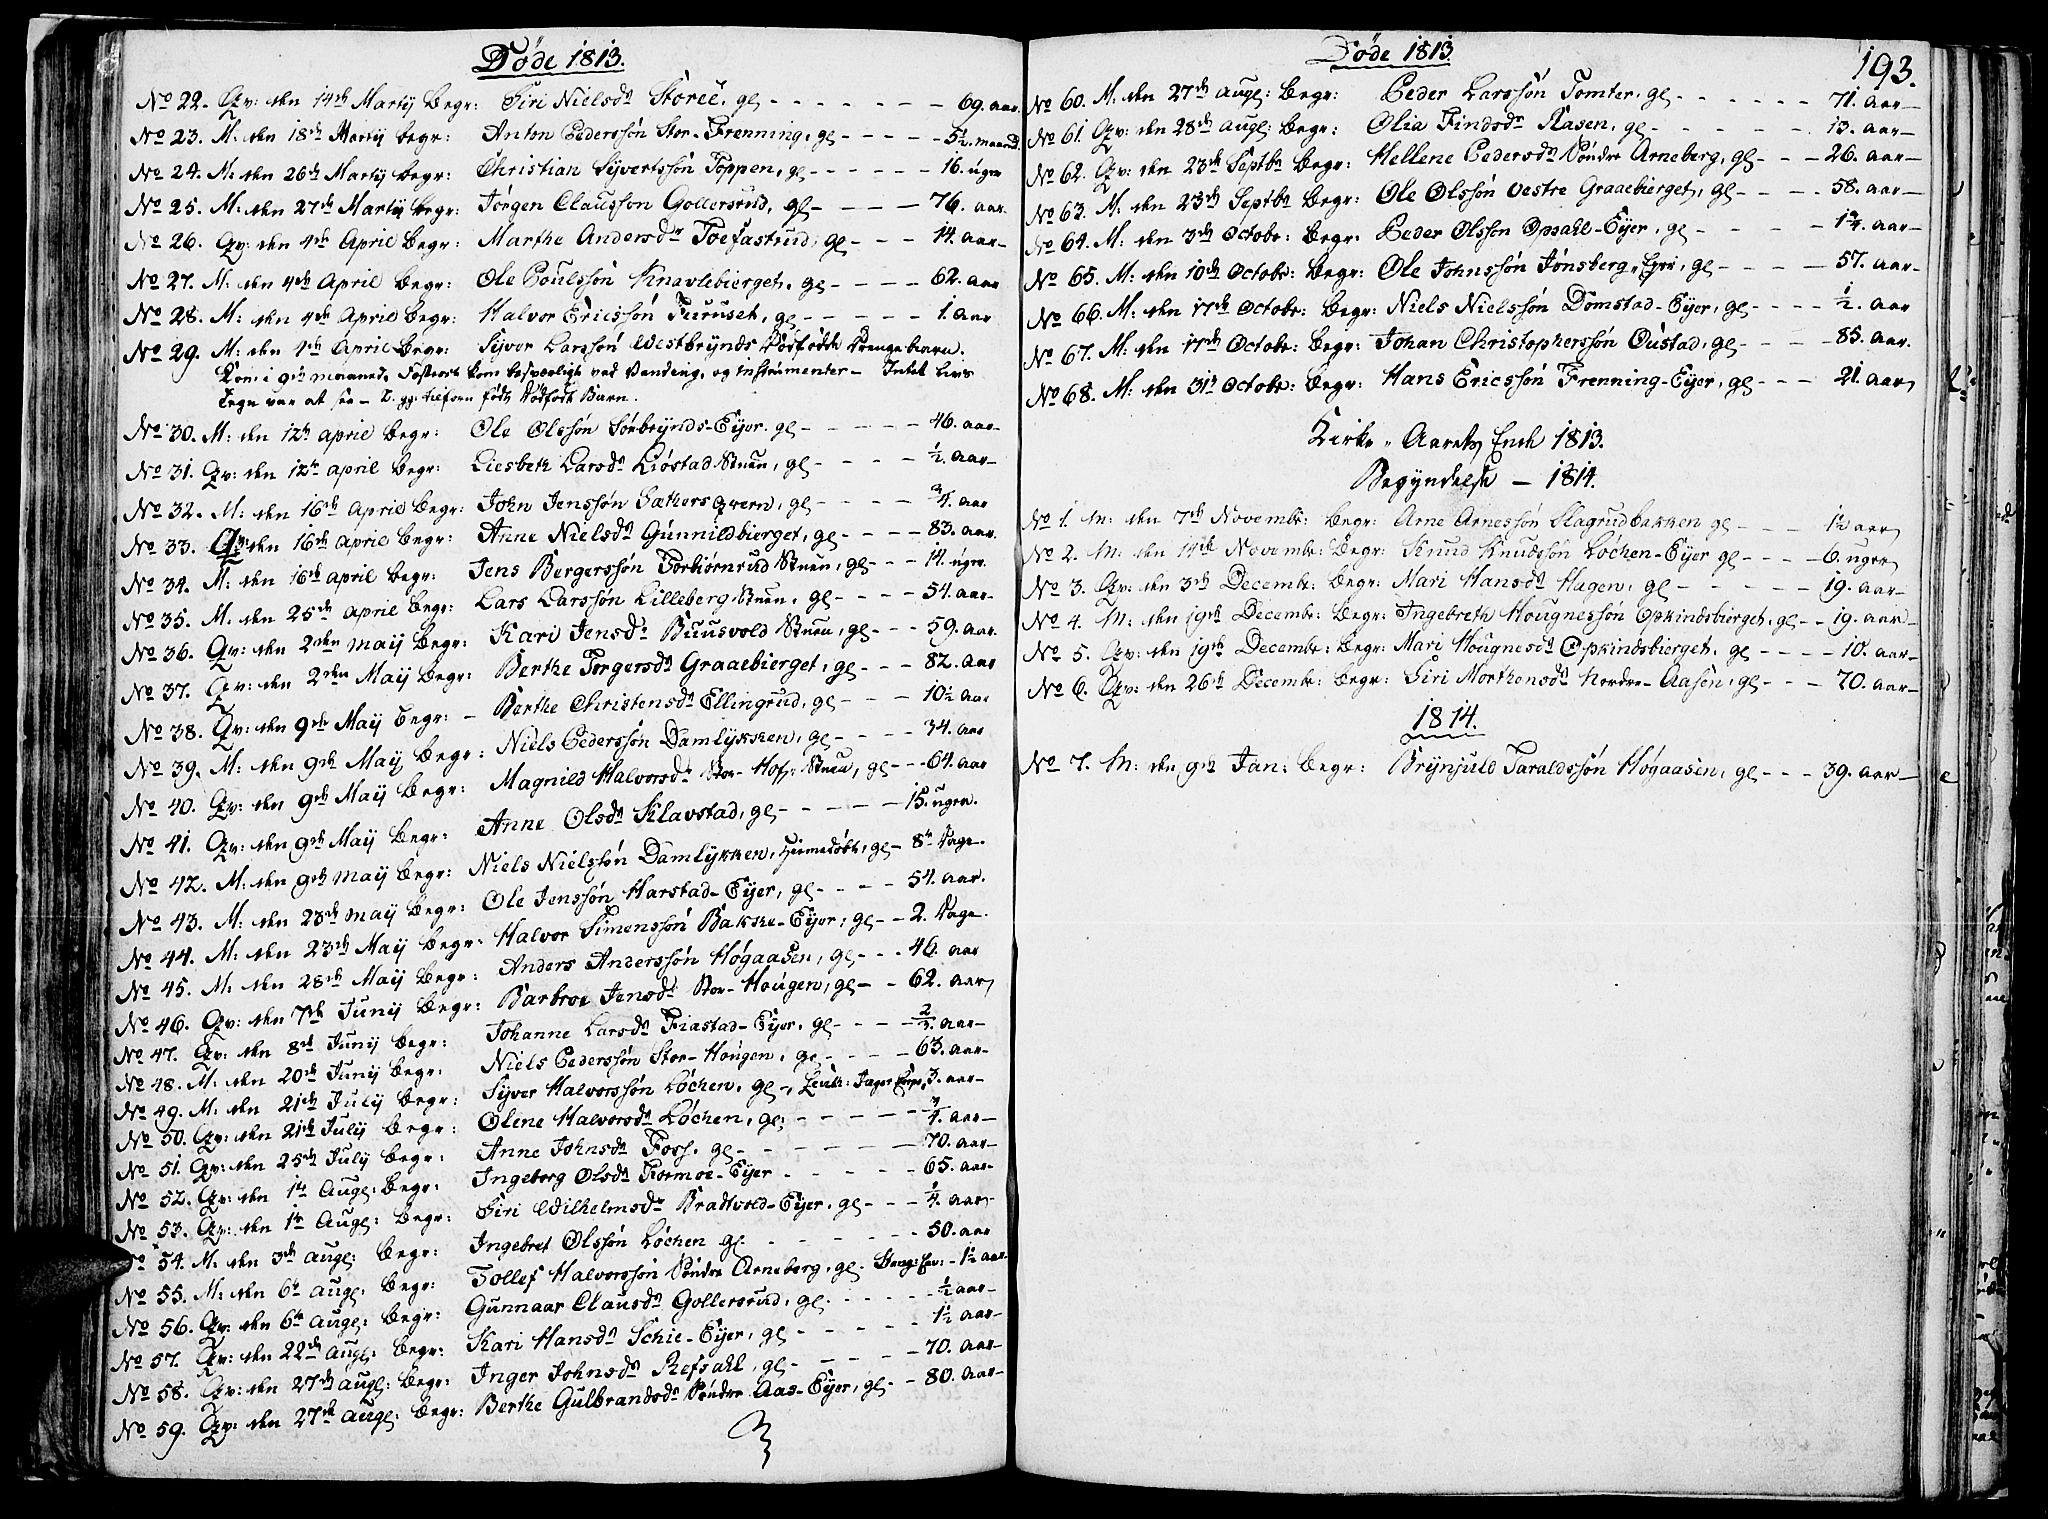 Døde 1813.
No 22. Qv: den 14de Martij Begr: Siri Nielsdr Storee. gl - - - 69. aar.
No 23. M: den 18de Martij begr: Anton Pedersøn Stor-Frenning, gl - - - 5½. maaned.
No 24. M: den 26de Martij begr: Christian Syvertssøn Toppen, gl - - - 16. uger
No 25. M: den 27de Martij begr: Jørgen Claussøn Gollersrud, gl - - - 76. aar.
No 26. Qv: den 4de April Begr: Marthe Andersdr Toefastrud, gl - - - 14. aar-
No 27. M: den 4de April Begr: Ole Poulssøn Knavlebierget. gl - - - 62. aar
No 28. M: den 4de April Begr: Halvor Ericssøn Furuset, gl - - - 1. aar
No 29. M: den 1de April Begr: Syver Larssøn Westbrynds Dødfødte Drengebarn.
Intet Livs
Tegn var at see - født Dødfødt Barn.
No 30. M: den 12te april Begr: Ole Olssøn Sørbrynds-Eyer. gl - - - 46. aar-
No 31. Qv: den 12te april Begr: Liesbeth Larsdr Liøstad Stuen, gl - - - ½. aar-
No 32. M: den 16de april Begr: John Jenssøn Sæthersqvern, gl - - - ¾. aar
No 33. Qv: den 16de april Begr: Anne Nielsdr Gunnildbierget, gl - - - 83. aar.
No 34. M: den 16de april Begr: Jens Bergerssøn Torbiørnrud Stuen, gl - - - 14. uger.
No 35. M. den 25de april Begr: Lars Larssøn Lilleberg Stuen. gl - - - 54. aar-
No 36. Qv: den 2den maij Begr: Kari Jensdr Buusvold Stuen, gl - - - 59. aar.
No 37. Qv: den 2den Maij Begr: Berthe Torgersdr Graaebierget, gl - - - 82. aar
No 38. Qv: den 9de Maij Begr: - Berthe Christensdr Ellingrud. gl - - - 10½ aar
No 39. M: den 9de Maij Begr: Niels Pederssøn Damlykken, gl - - - 34. aar
No 40. Qv: den 9de Maij Begr: Magnild Halvorsdr Stor-Hof-Stuen, gl - - 64. aar
No 41. Qv: den 9de Maij Begr: Anne Olsdr Klavstad, gl - - - 15. uger.
No 42. M: den 9de Maij Begr: Niels Nielssøn Damlykken, Hiemedøbt, gl - 8te Dage.
No 43. M: den 23de maij Begr: Ole Jenssøn Harstad-Eyer, gl - - - 54. aar.
No 44. M: den 23de Maij Begr: Halvor Simenssøn Bakke-Eyer, gl - - 2. Dage.
No 45. M: den 28de Maij Begr: Anders Anderssøn Høgaasen, gl - - - 46. aar
No 46. Qv: den 7de Junij Begr: Barbroe Jensdr Stor-Hougen, gl - - 62. aar
No 47. Qv: den 8de Junij Begr: Johanne Larsdr Fiastad-Eyer, gl - - - 2/3. aar-
No 48. M: den 20de Junij Begr: Niels Pederssøn Stor-Hougen, gl - - - 63. aar-
No 49. M. den 21de Julij Begr: Syver Halvorssøn Løchen. gl -, Leuth: Jæger Corps, 3. aar-
No 50. Qv: den 21de Julij Begr: Olene Halvorsdr Løchen, gl - - - ¾. aar-
No 51. Qv: den 25de Julij Begr: Anne Johnsdr Foss. gl - - - 70. aar-
No 52. Qv: den 1te Augl: Begr: Ingeborg Olsdr Kormoe-Eyer - - - 65. aar-
No 53. Qv: den 1te Augl: Begr: Siri Wilhelmsdr Bradtvold-Eyer, gl - - - ¼. aar-
No 54. M. den 3de augl: Begr: Ingebret Olssøn Løchen gl. - - - 50. aar
No 55. M: den 6te augl: Begr: Tollef Halvorssøn Søndre Arneberg, gl. - 1½ aar.
No 56. Qv: den 6te augl: Begr: Gunnaar Clausdr Gollersrud, gl. - - - ½ aar-
No 57. Qv: den 22de augl: Begr: Kari Hansdr Schie-Eyer, gl - - - 1½ aar-
No 58. Qv: den 27de augl: Begr: Inger Johnsdr Refsahl, gl - - - 70. aar-
No 59. Qv: den 27de augl: Begr: Berthe Gulbrandsdr Søndre Aas-Eyer, gl - - 80. aar-
Døde 1813.
193.
No 60. M: den 27de augl: Begr: Peder Larssøn Tomter. gl - - - 71. aar-
No 61. Qv: den 28de augl: Begr: Olia Findsdr Aasen, gl - - - 13. aar-
No 62. Qv: den 23de Septbr Begr: Hellene Pedersdr Søndre Arneberg, gl - - - 26. aar-
No 63. M. den 23de Septbr Begr: Ole Olssøn vestre Graaebierget, gl - - - 58. aar-
No 64. M: den 3de Octobr: Begr: Peder Olssøn Opsahl-Eyer, gl - - - 1¼. aar-
No 65. M: den 10de Octobr: Begr: Ole Johnssøn Jønsberg-Eyer, gl - - - 57. aar-
No 66. M: den 17de Octobr: Begr: Niels Nielssøn Domstad-Eyer, gl - - - ½. aar
No 67. M: den 17de Octobr: Begr: Johan Christopherssøn Oustad, gl - - - 85. aar.
No 68. M: den 31te Octobr: Begr: Hans Ericssøn Frenning-Eyer, gl - - - 21. aar
Kirke-Aarets Ende 1813.
Begyndelse - 1814.
No 1. M: den 7de Novembr: Begr: Arne Arnessøn Slagrudbakken gl - - - 1½ aar
No 2. M: den 14de Novembr: Begr: Knud Knudssøn Løchen-Eyer gl - - - 6. uger
No 3. Qv: den 3de Decembr: Begr: Mari Hansdr Hagen, gl - - - 19. aar-
No 4. M: den 19de Decembr: Begr: Ingebreth Hougnessøn Opkindsbierget, gl - - 19. aar-
No 5. Qv: den 19de Decembr: Begr: Mari Hougnesdr Opkindsbierget, gl - - - 10. aar-
No 6. Qv: den 26de Decembr: Begr: Siri Morthensdr Nordre-Aasen, gl - - - 70. aar-
1814.
No 7. M: den 9de Jan: Begr: Brynjuld Taraldssøn Høgaasen, gl - - - 39. aar-